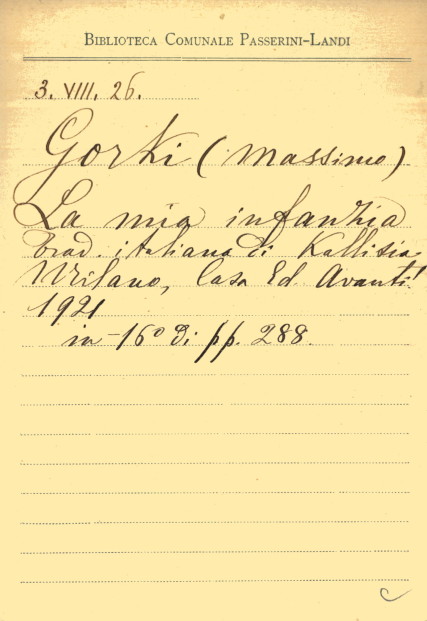 BIBLIOTECA COMUNALE PASSERINI-LANDI
3. VIII. 26.
Gorki (Massimo)
La mia infanzia
Trad. italiana di Kallisia
Milano, Casa Ed. Avanti!
1921
in-16° di pp. 288.